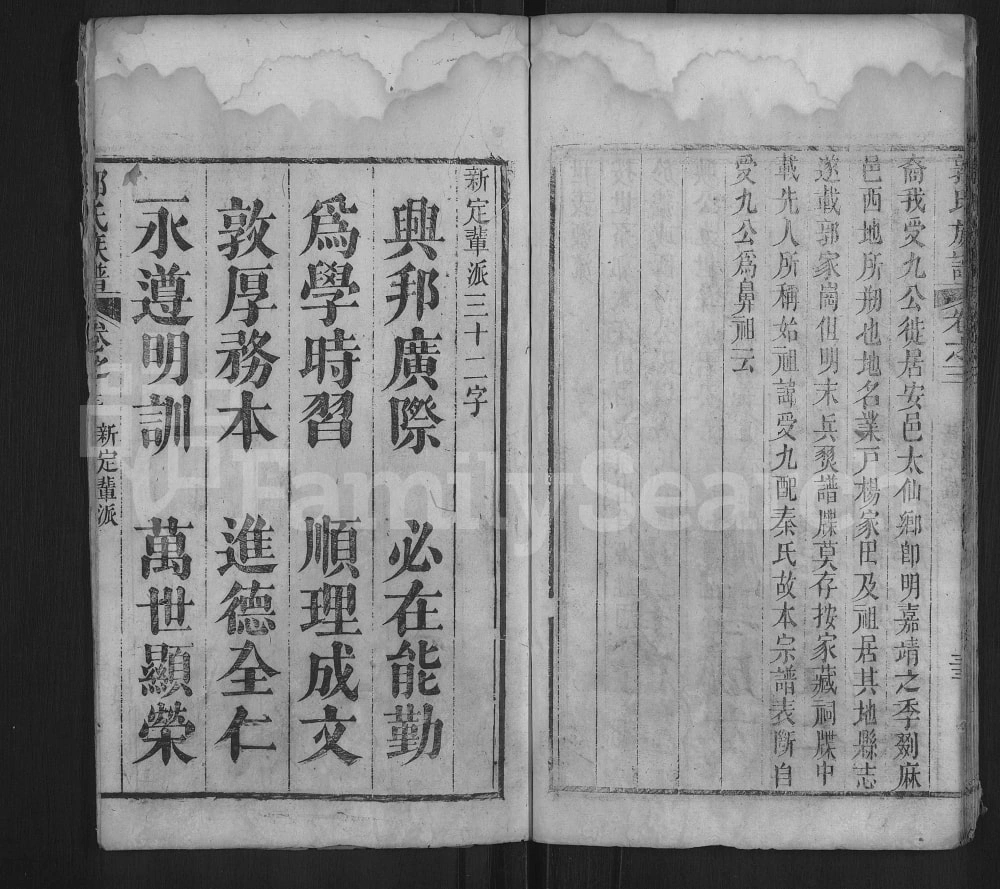 郭氏族譜 卷之三
裔我受九公徙居安邑太仙鄉卽明嘉靖之季劉麻
邑西地所剏也地名業戸楊家田及祖居其地縣志
遂載郭家崗但明末兵燹譜牒莫存按家藏祠牒中
載先人所稱始祖諱受九配秦氏故本宗譜表斷自
受九公爲鼻祖云
新定輩派三十二字
興邦廣際 必在能勤
爲學時習 順理成文
敦厚務本 進德全仁
永遵明訓 萬世顯榮
郭氏族譜 卷之三 新定輩派
FamilySearch